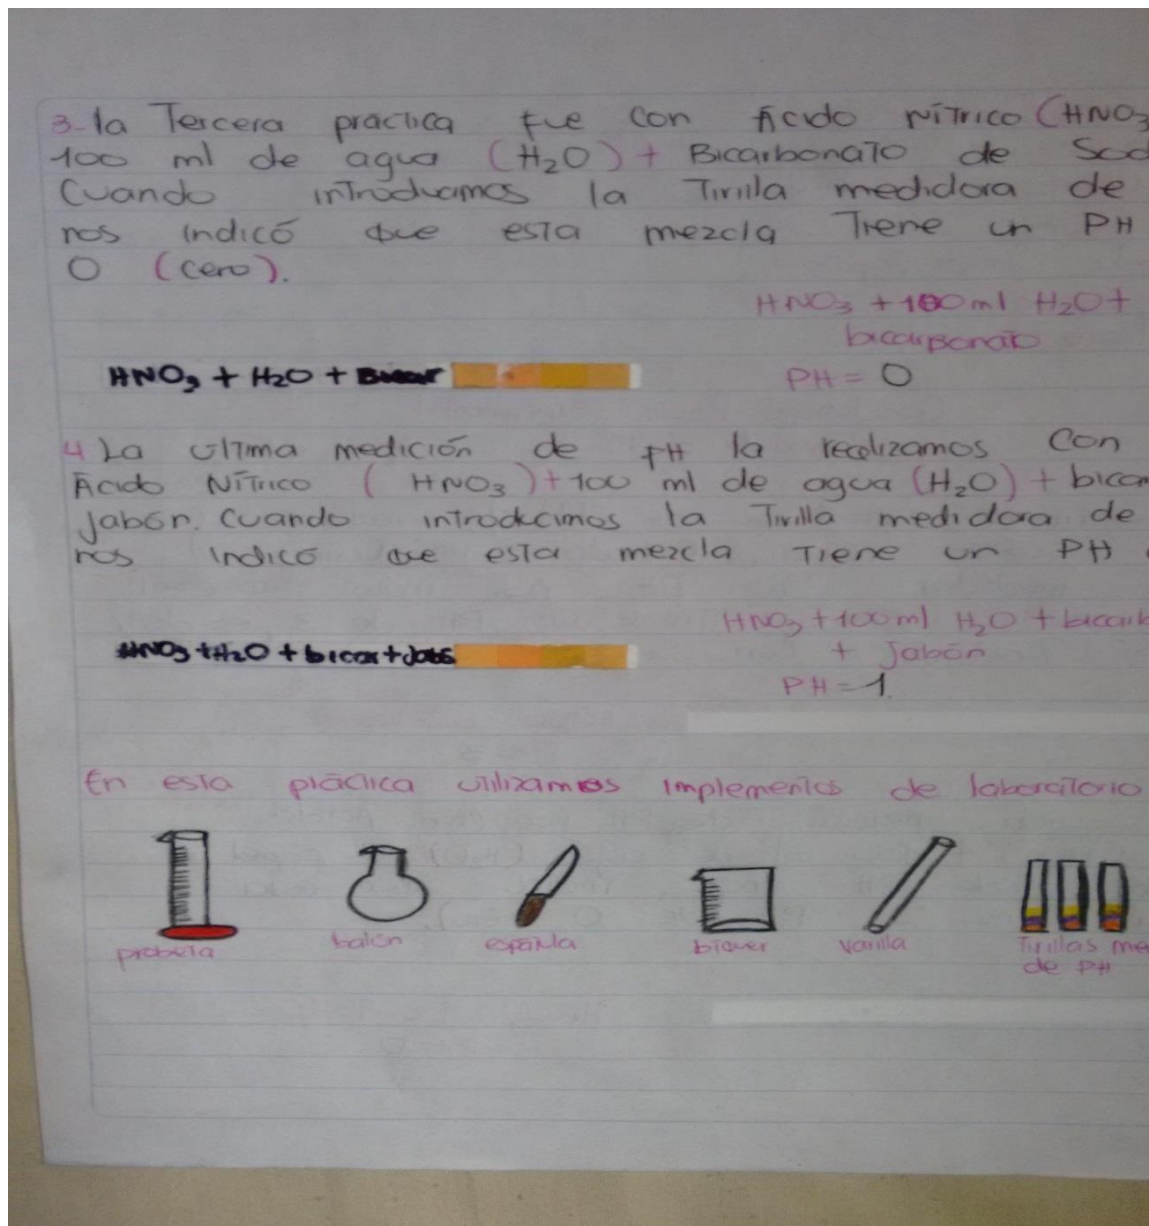 3-la Tercera practica fue con Ácido NíTrico (HNO3
100 ml de agua (H2O) + BicarbonaTo de Sod
Cuando inTroducimos la Tirilla medidora de
nos indicó que esTa mezcla Tiene un PH
0 (cero).
HNO3 + 100 ml H2O +
bicarbonaTo
HNO3 + H2O + Bicar
PH = 0
4 La UlTima medición de PH la realizamos Con
Ácido NíTrico (HNO3) + 100 ml de agua (H2O) + bicar
Jabón. Cuando introducimos la Tirilla medidora de
nos Indicó que esTa mezcla Tiene un PH
HNO3 + 100 ml H2O + bicarb
+ Jabón
HNO3 + H2O + bicar +
PH = 1.
En esTa prácTica uTilizamos ImplemenTos de laboraTorio
probeTa balón espáTula biquer varilla Tirillas me
de PH